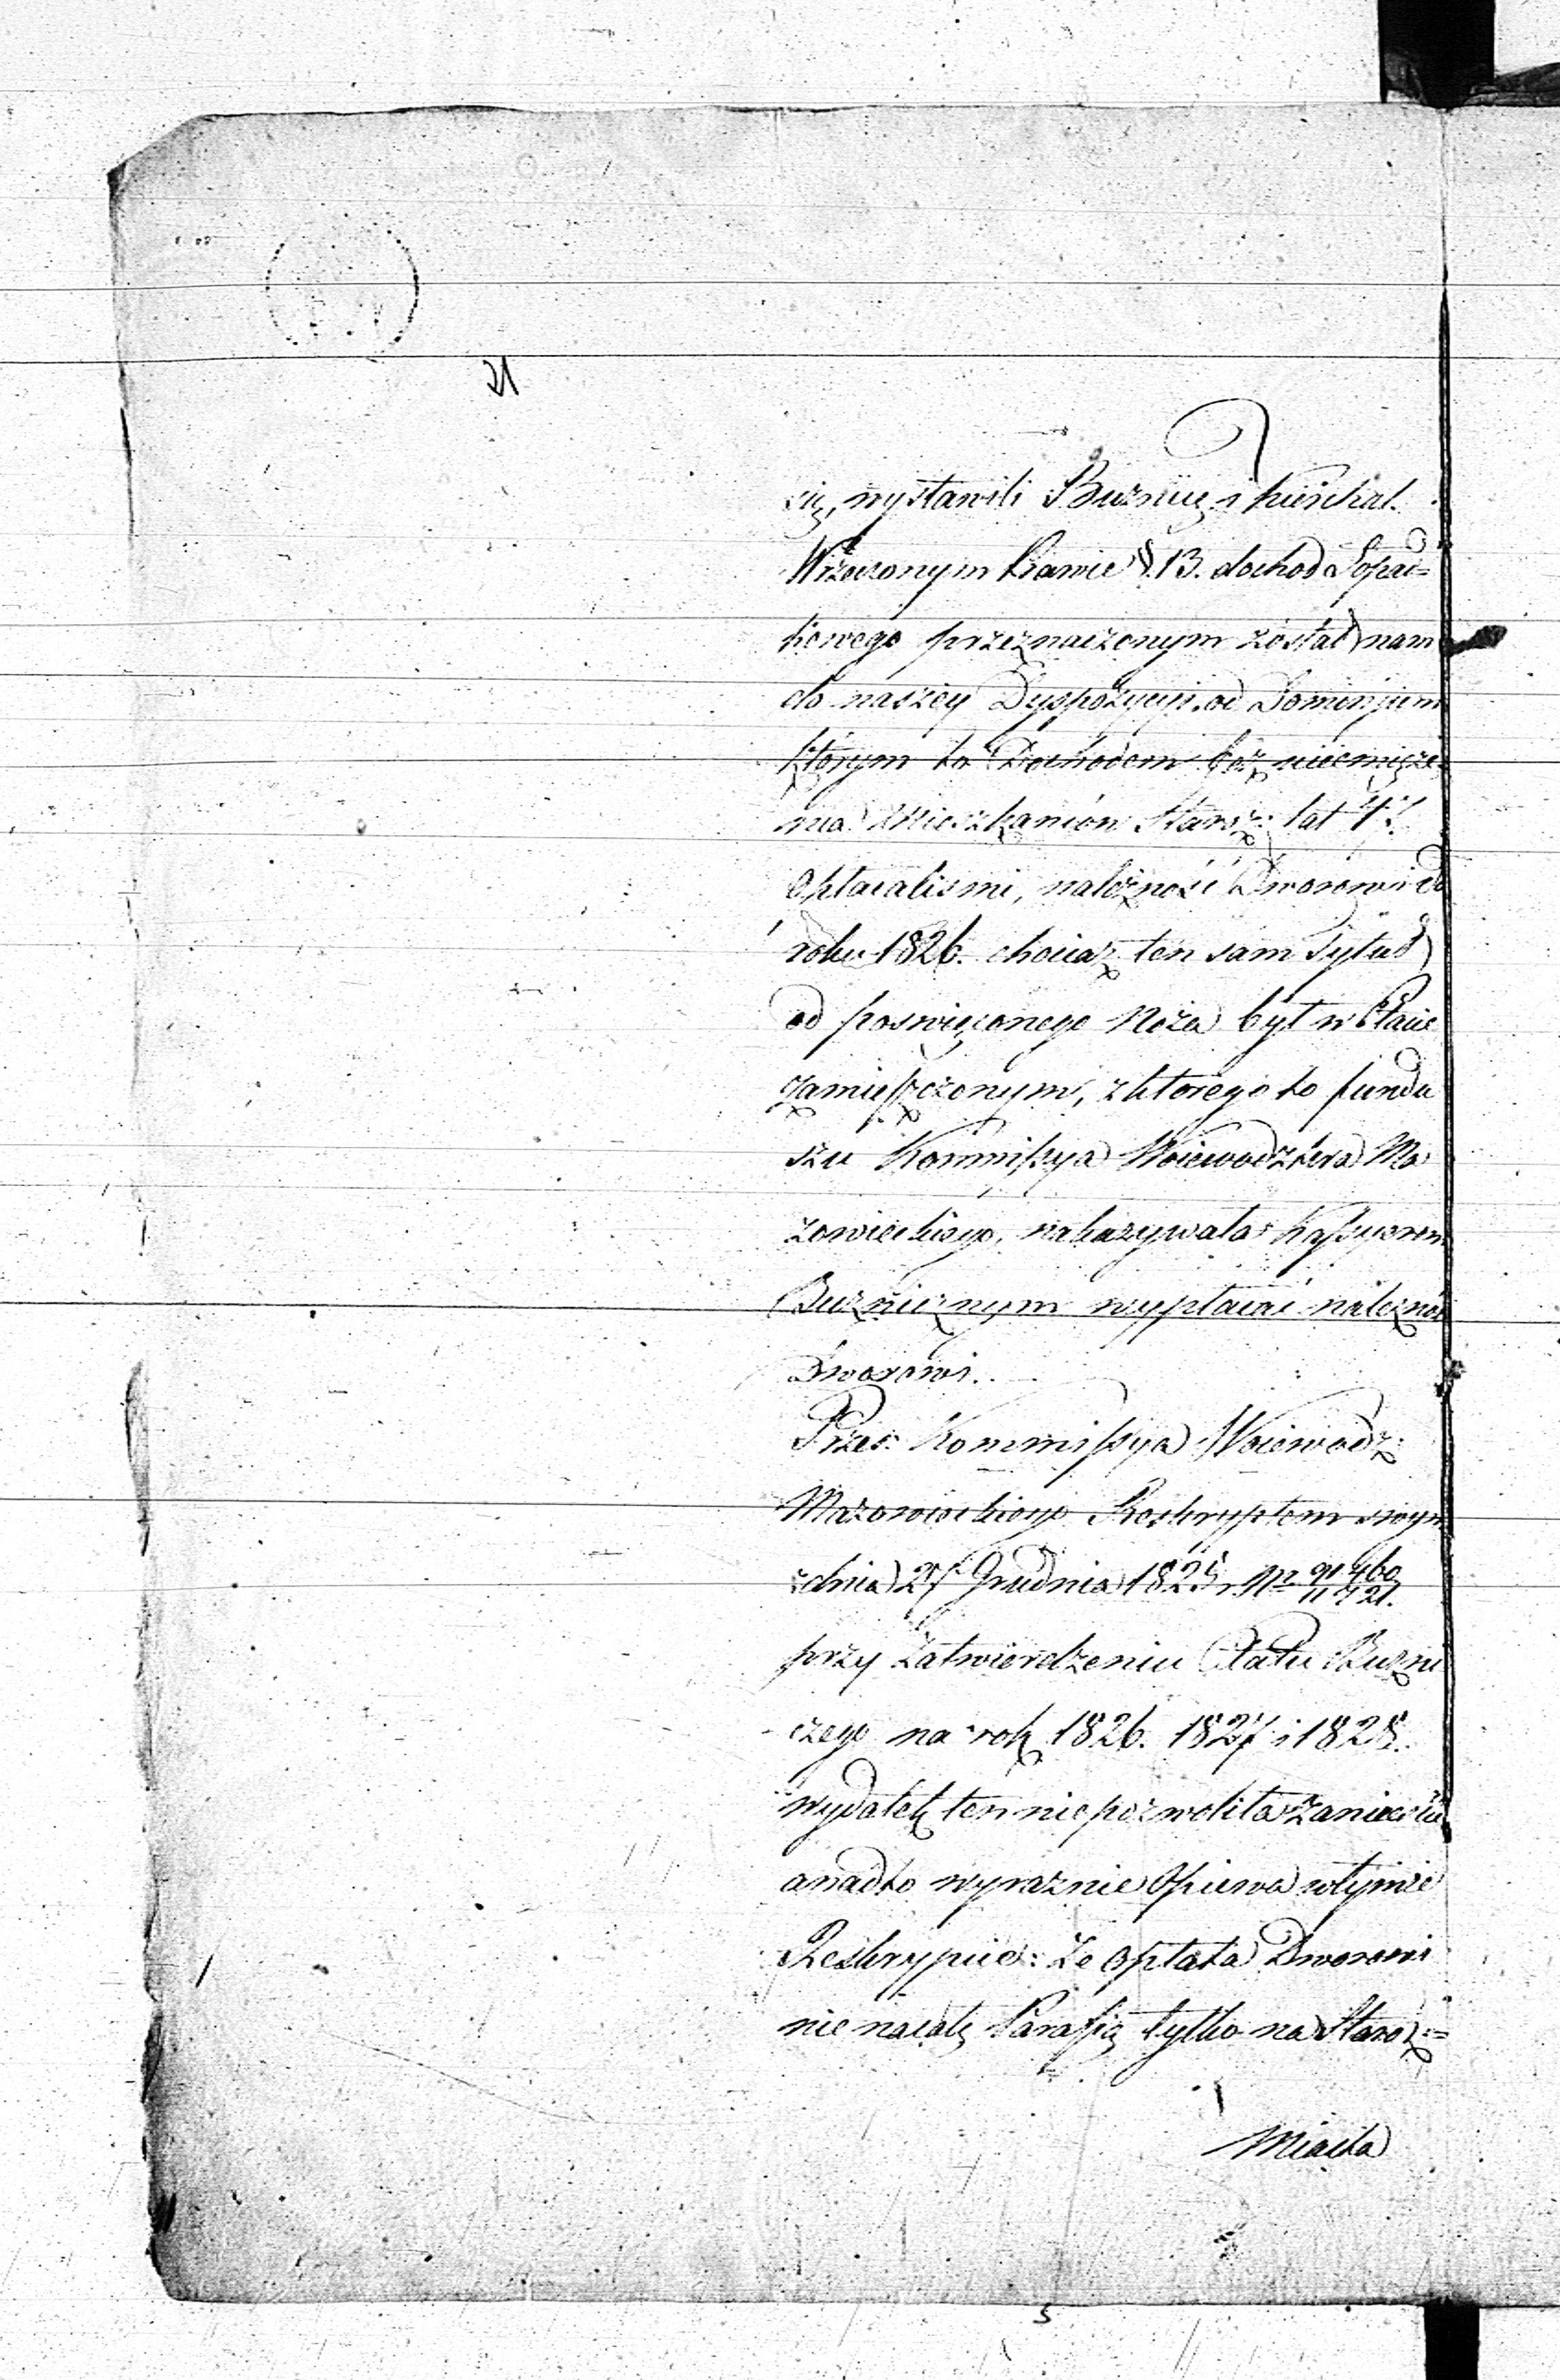 21
się, wystawili Buznicę i kierchał.
W rzeczonym Prawie §. 13. dochod Kopał=
kowego przeznaczonym został nam
do naszey Dyspozycyi, od Dominium
którym to Dochodem bez uciemięże
nia Mieszkanców Staroz: lat
opłacalismi, należność Dworowi do
roku 1826. chociaz ten sam Tytuł
od poswięconego Noża był w Etacie
zamieszczonym, z ktorego to fundu
szu Kommissya Woiewodztwa Ma
zowieckiego, nakazywała Kassyerom
Buznicznym wypłacać należnoś
Dworowi.
Przes: Kommissya Woiewodz:
Mazowieckiego Reskryptem swym
z dnia 27 Grudnia 1825 r. Nr 91460/11721.
przy zatwierdzeniu Etatu Buzni
czego na rok 1826. 1827 i 1828.
wydatek ten nie pozwoliła zaniesci
a nadto wyraznie Opiewa w tymże
Reskrypcie: Ze Opłata Dworowi
nie na całę Parafią tylko na Staroz:=
Miasta
5